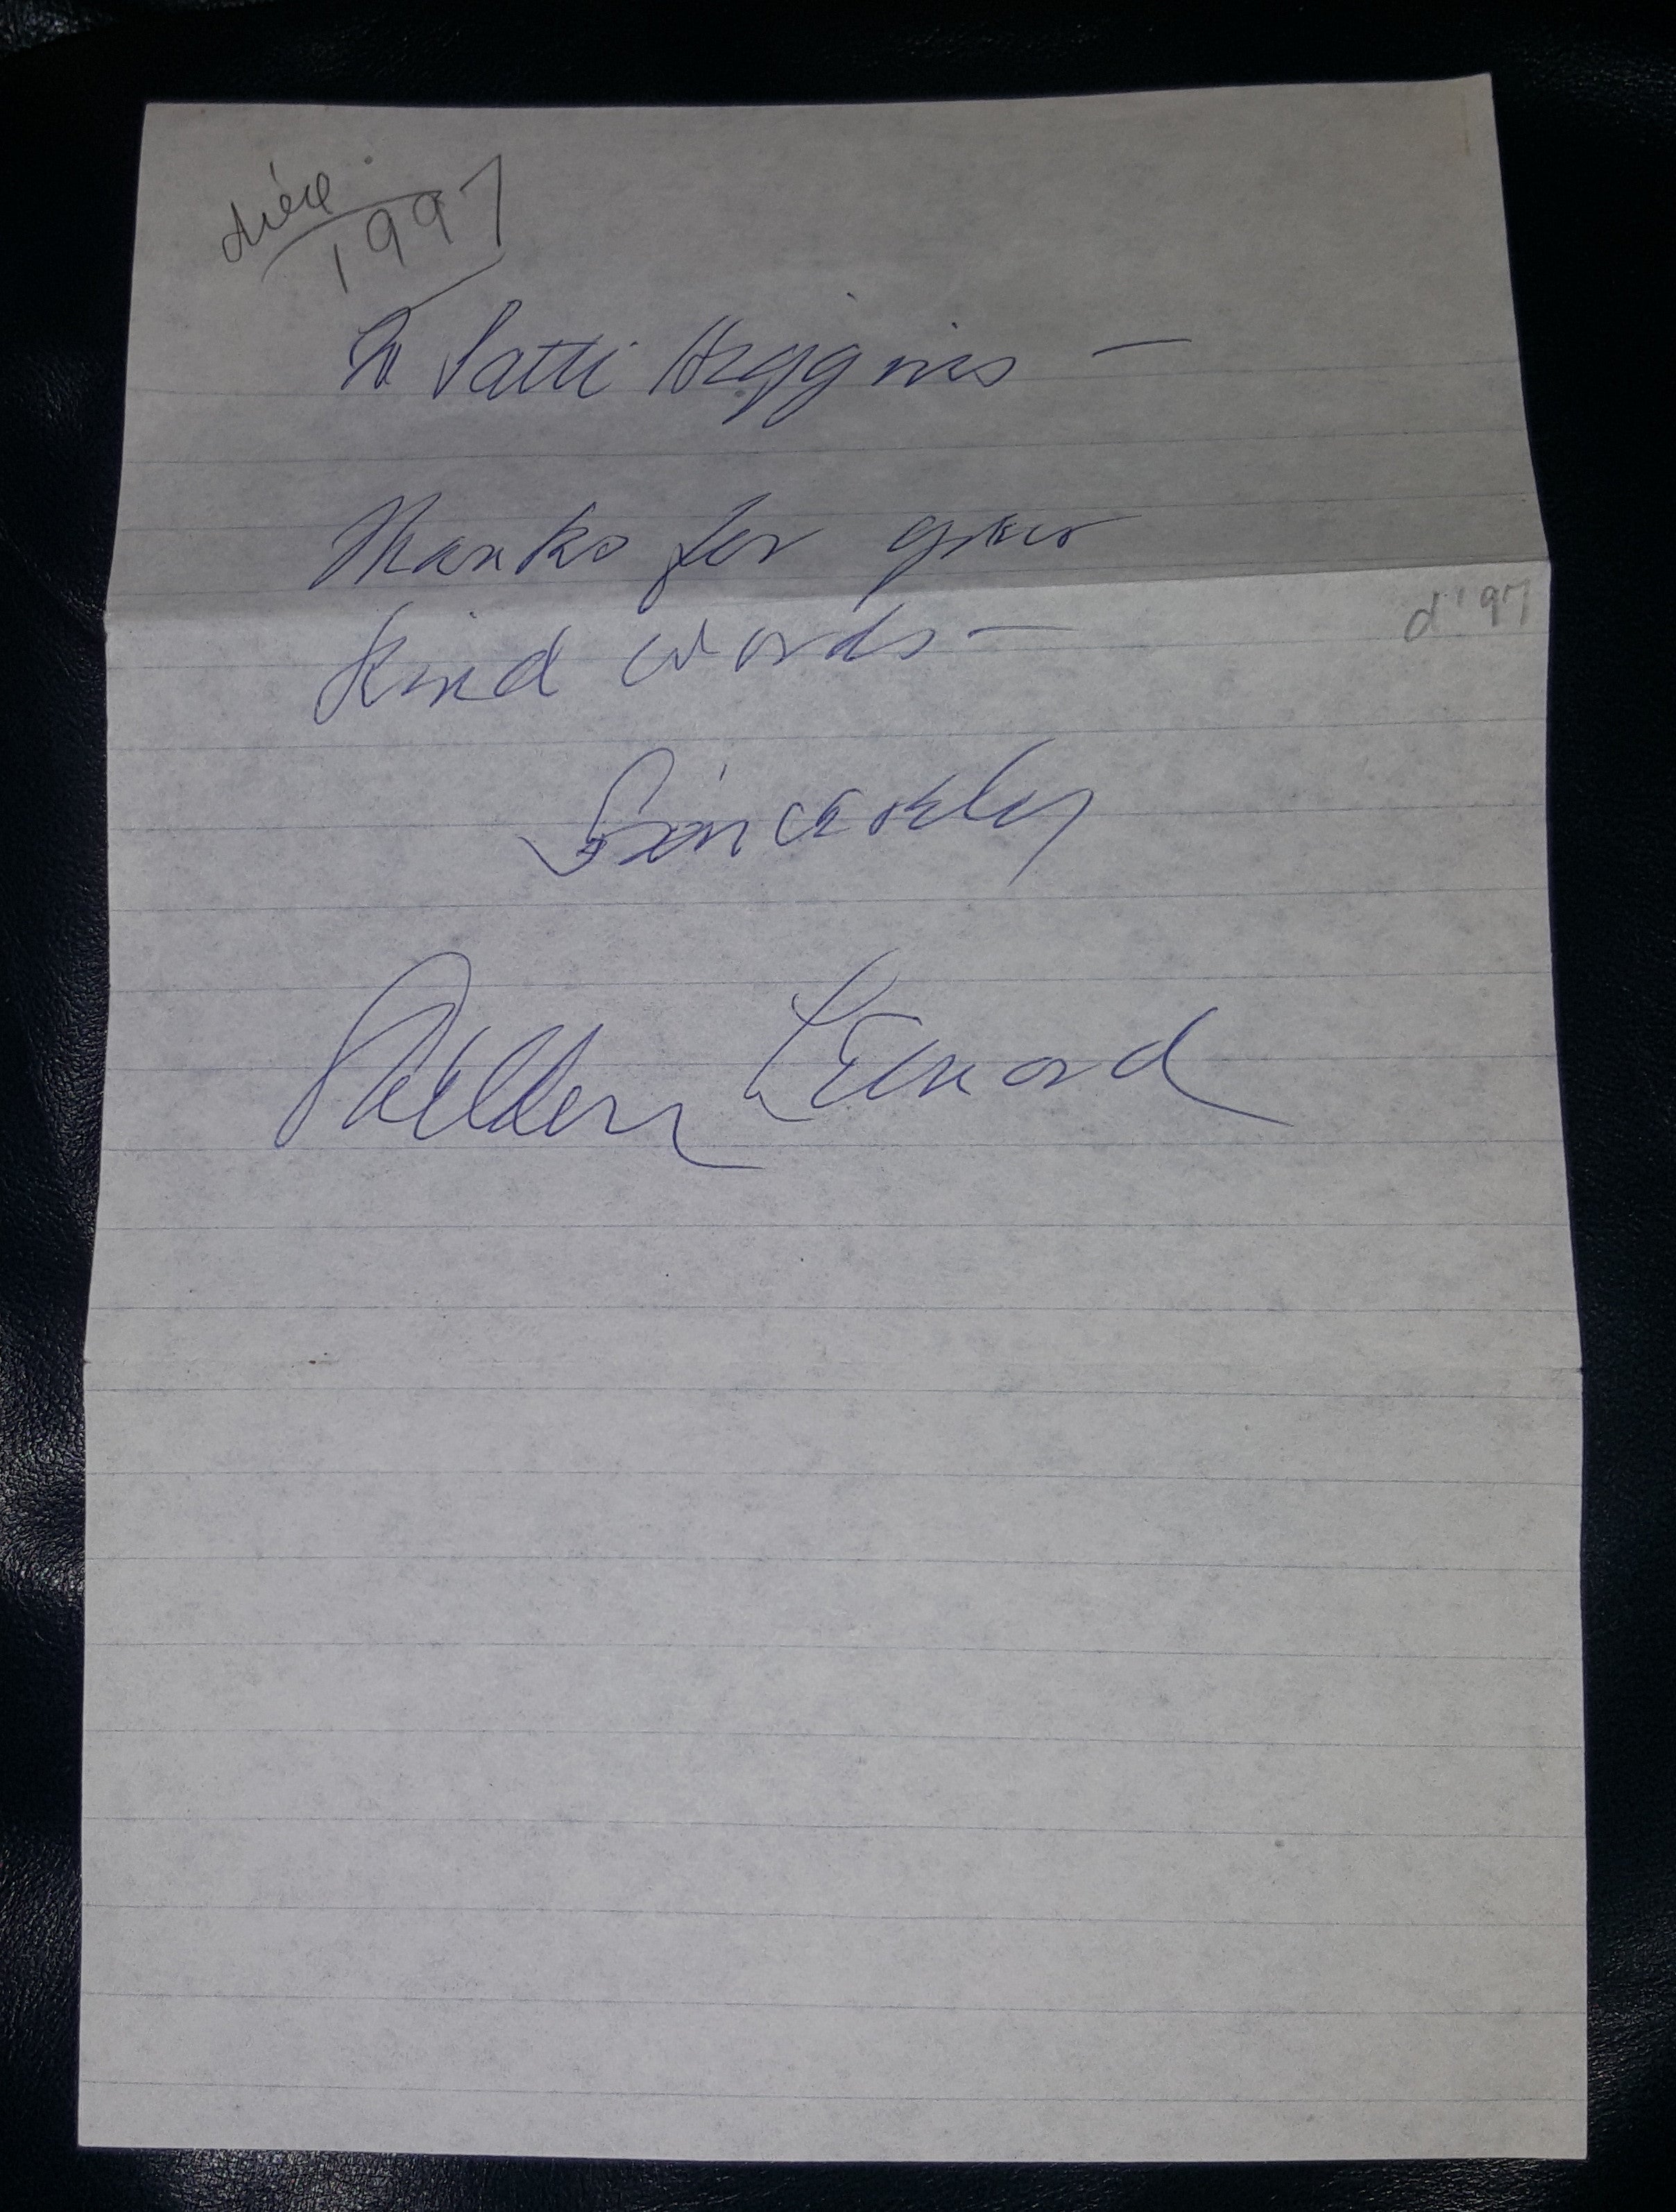 died
1997
To Patti Higgins —
Thanks for your
d '97
kind words —
Sincerely
Sheldon Leonard